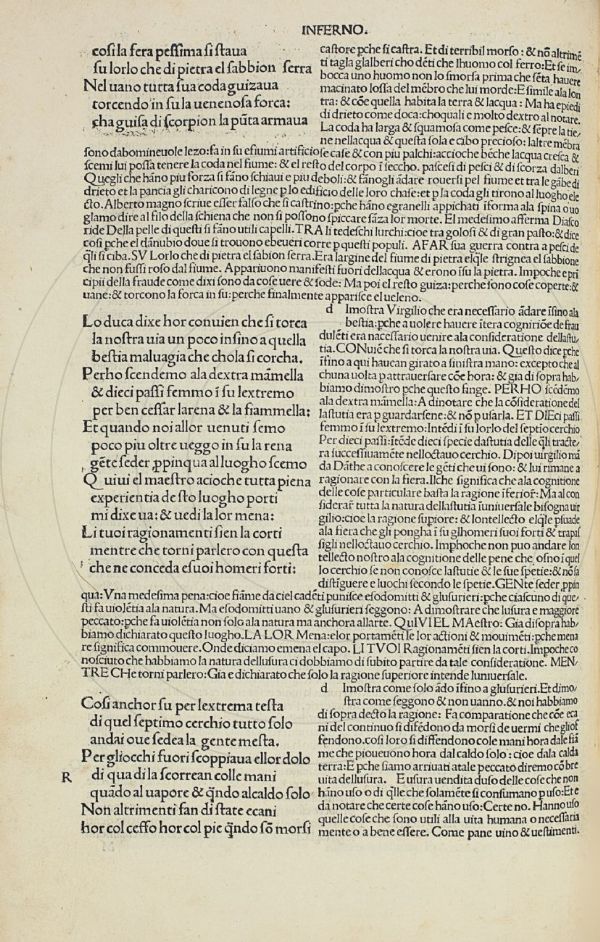 INFERNO.
cosi la fera pessima si staua
su lorlo che di pietra el sabbion serra
Nel uano tutta sua coda guizaua
torcendo in su la uenenosa forca:
cha guisa di scorpion la pūta armaua
castore pche si castra. Et di terribil morso: & nō altrimē
ti tagla glalberi cho dēti che lhuomo col ferro: Et se im
bocca uno huomo non lo smorsa prima che sēta hauere
macinato lossa del mēbro che lui morde: E simile ala lon
tra: & cōe quella habita la terra & lacqua: Ma ha e piedi
di drieto come doca: choquali e molto dextro al notare.
La coda ha larga & squamosa come pesce: & sēpre la tie/
ne nellacqua & questa sola e cibo precioso: laltre mēbra
sono dabomineuole lezo: fa in su e fiumi artificiose case & con piu palchi: accioche bēche lacqua cresca &
scemi lui possa tenere la coda nel fiume: & el resto del corpo ī seccho. pascesi di pesci & di scorza dalberi
Quegli che hāno piu forza si fāno schiaui e piu deboli: & fānogli ādare rouersi pel fiume et tra le gābe di
drieto et la pancia gli charicono di legne p lo edificio delle loro chase: et p la coda gli tirono al luogho ele
cto. Alberto magno scriue esser falso che si castrino: pche hāno egranelli appichati ī forma ala spina o uo
glamo dire al filo della schiena che non si possono spiccare sāza lor morte. El medesimo afferma Diasco
ride Della pelle di questi si fāno utili capelli. TRA li tedeschi lurchi: cioe tra golosi & di gran pasto: & dice
cosi pche el dānubio doue si trouono ebeueri corre p questi populi. A FAR sua guerra contra a pesci de
q̄li si ciba. SV Lorlo che di pietra el sabbion serra. Era largine del fiume di pietra elq̄le strignea el sabbione
che non fussi roso dal fiume. Appariuono manifesti fuori dellacqua & erono ī su la pietra. Impoche e pri
cipii della fraude come dixi sono da cose uere & sode: Ma poi el resto guiza: perche sono cose coperte: &
uane: & torcono la forca in su: perche finalmente apparisce el ueleno.
Lo duca dixe hor conuien che si torca
la nostra uia un poco insino a quella
bestia maluagia che chola si corcha.
Perho scendemo ala dextra māmella
& dieci passi femmo ī su lextremo
per ben cessar larena & la fiammella:
Et quando noi allor uenuti semo
poco piu oltre ueggo in su la rena
gēte seder ppinqua al luogho scemo
Quiui el maestro acioche tutta piena
experientia de sto luogho porti
mi dixe ua: & uedi la lor mena:
Li tuoi ragionamenti sien la corti
mentre che torni parlero con questa
che ne conceda e suoi homeri forti:
d Imostra Virgilio che era necessario ādare īsino ala
bestia: pche a uolere hauere ītera cognitiōe de frau
dulēti era necessario uenire ala consideratione dellastu/
tia. CONuiē che si torca la nostra uia. Questo dice pche
īsino a qui hauean girato a sinistra mano: excepto che al
chuna uolta pattrauersare cōe hora: & gia di sopra hab/
biamo dimostro pche questo finge. PERHO scēdēmo
ala dextra māmella: A dinotare che la cōsideratione del
lastutia era p guardarsene: & nō p usarla. ET DIEci passi
femmo ī su lextremo: Intēdi ī su lorlo del septio cerchio
Per dieci passi: ītēde dieci specie dastutia delle q̄li tracte/
ra successiuamēte nelloctauo cerchio. Di poi uirgilio mā
da Dāthe a conoscere le gēti che ui sono: & lui rimane a
ragionare con la fiera. Ilche significa che ala cognitione
delle cose particulare basta la ragione īferiore: Ma al con
siderar tutta la natura dellastutia ī uniuersale bisogna uir
gilio: cioe la ragione supiore: & lontellecto elq̄le psuade
ala fiera che gli pongha ī su glhomeri suoi forti & trapas
sigli nelloctauo cerchio. Imphoche non puo andare lon
tellecto nostro ala cognitione delle pene che sono ī quel
lo cerchio se non conosce lastutie & le sue spetie: & nō sa
distiguere e luochi secondo le spetie. GENte seder ppin
qua: Vna medesima pena: cioe fiāme da ciel cadēti punisce esodomitti & glusurieri: pche ciascuno di que/
sti fa uiolētia ala natura. Ma e sodomitti uano & glusurieri seggono: A dimostrare che lusura e maggiore
peccato: pche fa uiolētia non solo ala natura ma anchora allarte. QuIVI EL MAestro: Gia di sopra hab/
biamo dichiarato questo luogho. LA LOR Mena: elor portamēti le lor actioni & mouimēti: pche mena
re significa commouere. Onde diciamo emena el capo. LI TVOI Ragionamēti sien la corti. Impoche co
nosciuto che habbiamo la natura dellusura ci dobbiamo di subito partire da tale consideratione. MEN/
TRE CHe torni parlero: Gia e dichiarato che solo la ragione superiore intende luniuersale.
Cosi anchor su per lextrema testa
di quel septimo cerchio tutto solo
andai oue sedea la gente mesta.
Per gliocchi fuori scoppiaua ellor dolo
di qua di la scorrean colle mani
quādo al uapore & q̄ndo al caldo solo
Non altrimenti fan di state e cani
hor col ceffo hor col pie q̄ndo sō morsi
R
d Imostra come solo ādo īsino a glusurieri. Et dimo/
stra come seggono & non uanno. & noi habbiamo
di sopra decto la ragione: Fa comparatione che cōe eca
ni del continuo si difēdono da morsi de uermi che gliof
fendono. cosi loro si diffendono cole mani hora dale fiā
me che piouerono hora dal caldo solo: cioe dala calda
terra: E pche siamo arriuati atale peccato diremo cō bre
uita dellusura. E usura uendita duso delle cose che non
hāno uso o di q̄lle che solamēte si consumano p uso: Et e
da notare che certe cose hāno uso: Certe no. Hanno uso
quelle cose che sono utili alla uita humana o necessaria
mente o a bene essere. Come pane uino & uestimenti.